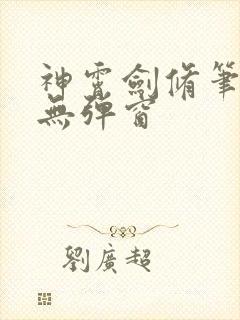 神霄劍脩筆
無彈窗
劉廣超